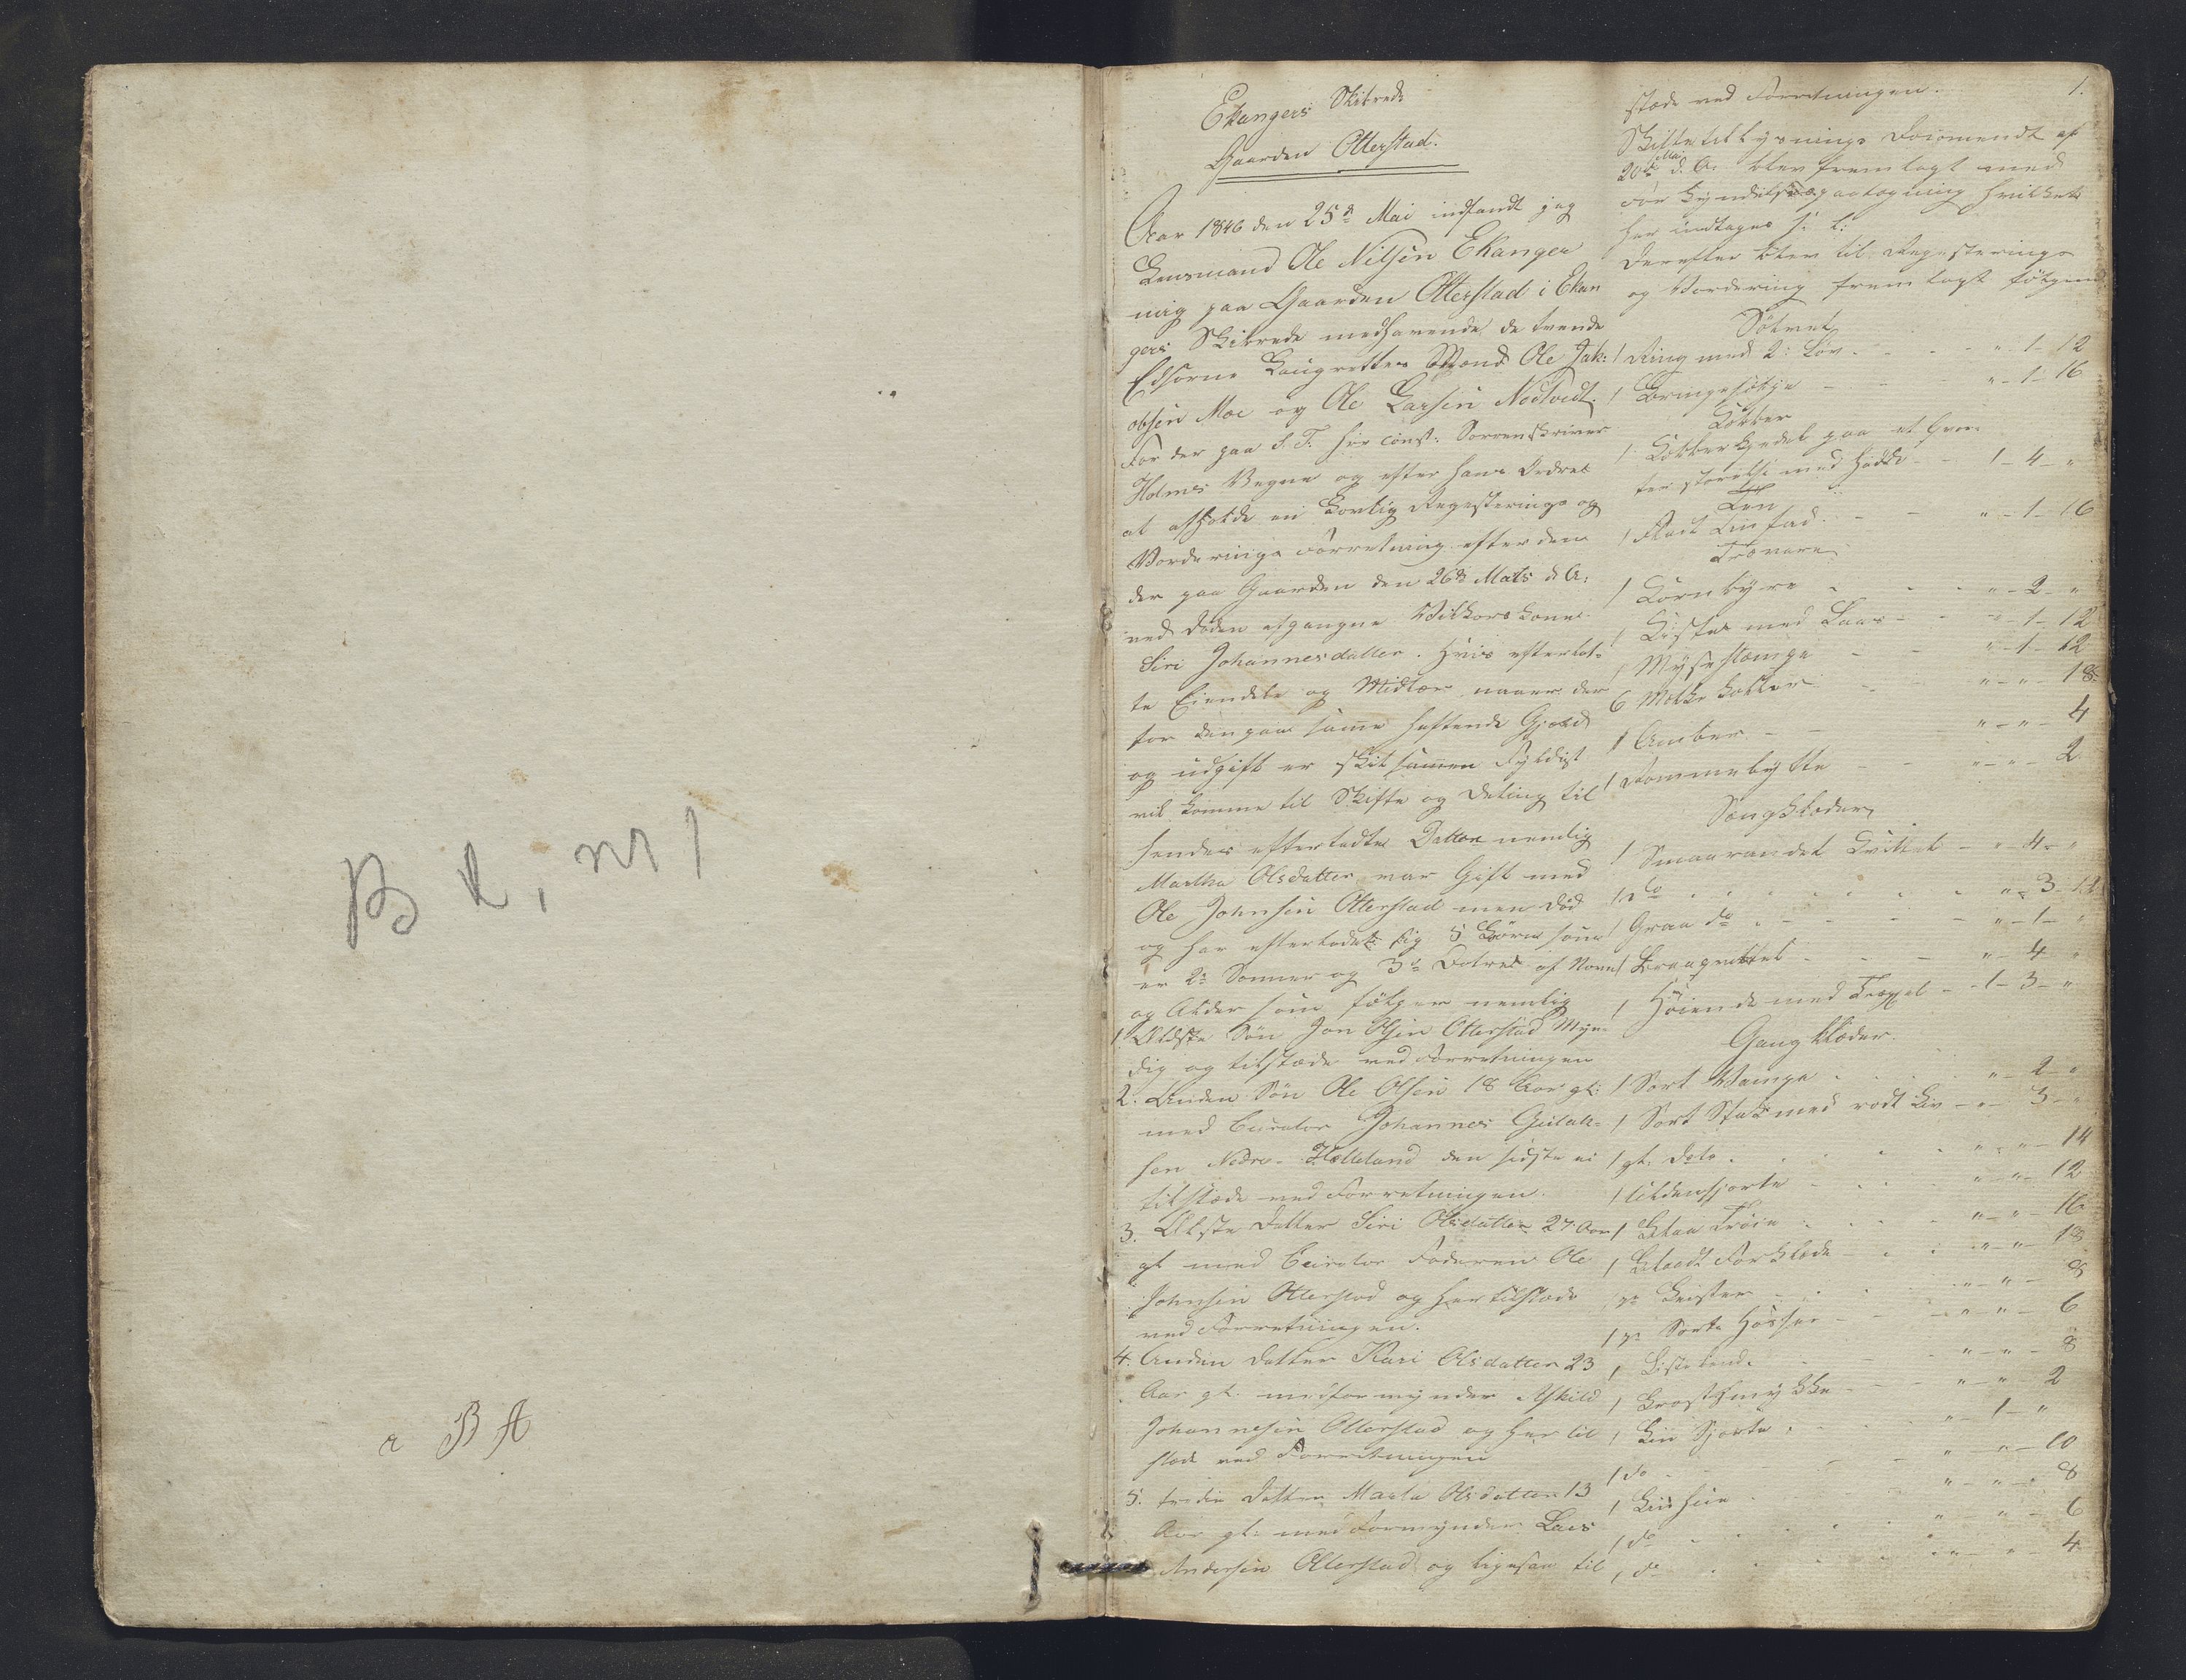 B L, M 1
a B A
1.
Ekangers Skibrede
Gaarden Otterstad.
Aar 1846 den 25de Mai indfandt jeg
Lensmand Ole Nilsen Ekanger
mig paa Gaarden Otterstad i Ekan
gers Skibrede medhavende de tvende
Edsorne Laugrettes Mænd Ole Jak:
obsen Moe og Ole Larsen Nødtvedt,
for der paa S. T. Hr const: Sorenskriver
Holmes Vegne og efter hans Ordre
at afholde en Lovlig Registerings og
Vorderings Forretning efter den
der paa Gaarden den 26de Mats d. A.
ved Døden afgangne Vilkors kone
Siri Johannesdatter. Hvis efterlat-
te Eiendele og Midler, naar der
for den paa samme heftende Gjæld
og udgift er skil sammen Fyldigt
vil komme til Skifte og Deling til
hendes efterladte Datter nemlig
Martha Olsdatter var Gift med
Ole Johnsen Otterstad men død
og har efterladt sig 5 Børn som
er 2de Sønner og 3de Døtre af Navn
og Alder som følger nemlig
1. Ældste Søn Jon Olsen Otterstad Myn-
dig og tilstæde ved Forretningen
2. Anden Søn Ole Olsen 18 Aar gl:
med Curator Johannes
sen Nedre-Helleland den sidste ei
tilstæde ved Forretningen.
3. Ælste Datter Siri Olsdatter 27 Aar
gl med Curator Faderen Ole
Johnsen Otterstad og her tilstæde
ved Forretningen.
4. Anden Datter Kari Olsdatter 23
Aar gl. med formynder Askild
Johannesen Otterstad og her til
stæde ved Forretningen
5. tredie Datter Marta Olsdatter 13
Aar gl. med Formynder Lars
Andersen Otterstad og ligesaa til
stæde ved Forretningen.
Skiftetillysnings Document af
20de Mai d. A. blev fremlagt med
For kyndelsespaategning hvilket
her indtages s: l:
Derefter blev til Registerings
og Vordering fremlagt følgende
Sølvet
1 Ring med 2: Løv - - " 1 - 12
1 Bringesølje - - " - 1 - 16
Kobber
1 Kobberkjedel paa et
ter størelse med Hadde - 1 - 4 - "
Tin
1 Fladt Tin fad. - - " - 1 - 16
Trævare
1 Kornbyre - - " - 2 - "
1 Kiste med Laas - - " - 1 - 12
1 Mysestampe - - " - 1 - 12
6 Melke kopper - - " - " - 18
1 Ambar - - " - " - 4
1 Rømmebytte - - " - " - 2
Sengklæder
1 Smaarandet Kvittel - " - 4 - "
1 do - - " - 3 - 12
1 Graa do - - " - 1 - "
1 Braagvittel - - " - 4 "
1 Høiende med Tæppel - 1 - 3 - "
Gangklæder.
1 Sort Kampe - - " - 2 - "
1 Sort Stak med rødt Liv - " - 3 - "
1 gl. dito - - " - " - 14
1 Uldenskjorte - - " - " - 12
1 Blaa Trøie - - " - " - 16
1 Blaadt Forklæde - - " - " - 18
1 pr Leister - - " - " - 8
1 pr Sorte Hosser - - " - " - 6
1 Listebend. - - " - " - 8
1 Brystsmykke - - " - " - 2
1 Lin Sjorte - - " - 1 - "
1 do - - " - " - 10
1 Linhue - - " - " - 8
1 do - - " - " - 6
1 do - - " - " - 4